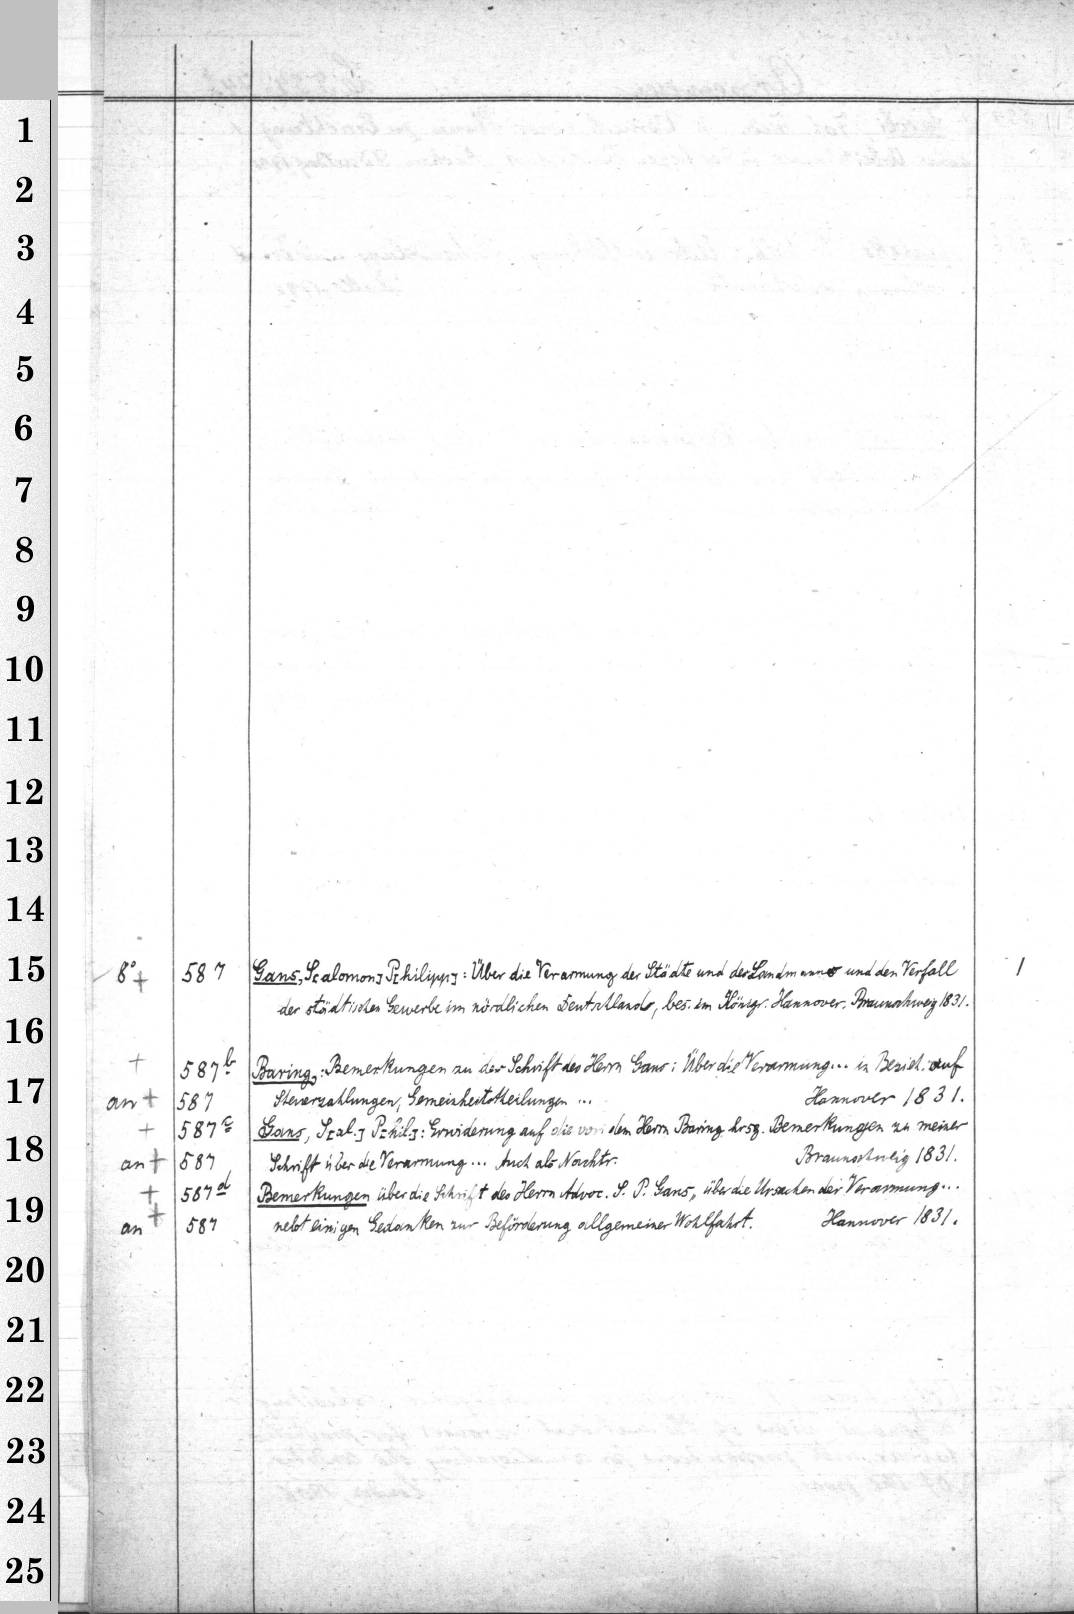 1
2
3
4
5
6
7
8
9
10
11
12
13
14
15
8° + 587 Gans, S[alomon] P[hilipp]: Über die Verarmung der Städte und des Landmanns und den Verfall 1
der städtischen Gewerbe im nördlichen Deutschlands, bes. im Königr. Hannover. Braunschweig 1831.
16
+ 587 b Baring,: Bemerkungen zu der Schrift des Herrn Gans: Über die Verarmung... in Bezieh. auf
17
an + 587 Steuerzahlungen, Gemeinheitstheilungen ... Hannover 1831.
+ 587 c Gans, S[al.] P[hil.]: Erwiderung auf die von dem Herrn Baring hrsg. Bemerkungen zu meiner
18
an + 587 Schrift über die Verarmung... Auch als Nachtr. Braunschweig 1831.
+ 587 d Bemerkungen über die Schrift des Herrn Advoc. S. P. Gans, über die Ursachen der Verarmung...
19
an + 587 nebst einigen Gedanken zur Beförderung allgemeiner Wohlfahrt. Hannover 1831.
20
21
22
23
24
25